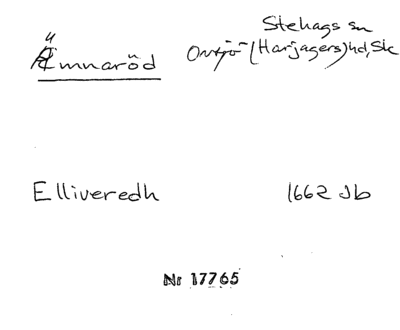 Stehags sn
Ämnaröd Onsjö (Harjagers) hd, Sk
Elliveredh 1662 Jb
Nr 17765